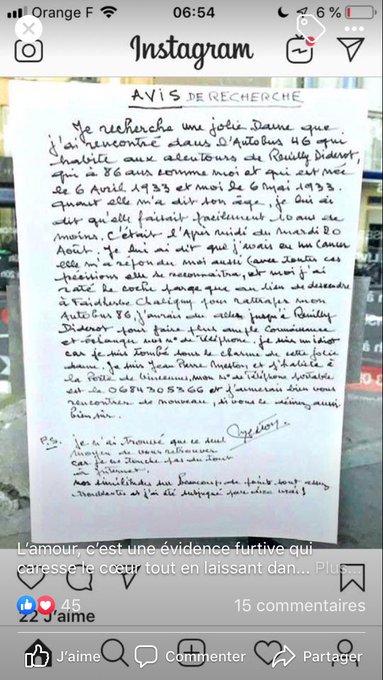 Orange F
06:54
6 %
Instagram
AVIS DE RECHERCHE
Je recherche une jolie Dame que
j'ai rencontré dans l'Autobus 46 qui
habite aux alentours de Reuilly Diderot,
qui à 86 ans comme moi et qui est née
le 6 Avril 1933 et moi le 6 mai 1933.
quant elle m'a dit son âge, je lui ai
dit qu'elle faisait facilement 10 ans de
moins. C'était l'Après midi du mardi 20
Août. Je lui ai dit que j'avais eu un Cancer
elle m'a répondu moi aussi (avec toutes ces
précisions elle se reconnaîtra, et moi j'ai
raté le coche parce que au lieu de descendre
à Faidherbe Chaligny pour rattraper mon
Autobus 86, j'aurais du aller jusqu'à Reuilly
Diderot pour faire plus ample connaissance
et échanger nos n° de téléphone. je suis un idiot
car je suis tombé sous le charme de cette jolie
dame. Je suis Jean Pierre et j'habite à
la Porte de Vincennes, mon n° de téléphone portable
est le 0684305366 et j'aimerais bien vous
rencontrer de nouveau, si vous le désirez aussi
bien sûr.
P.S. je n'ai trouvé que ce seul
moyen de vous retrouver
car je ne touche pas du tout
à Internet.
nos similitudes sur beaucoup de points sont assez
troublantes et j'ai été subjugué par vous !
L'amour, c'est une évidence furtive qui
caresse le cœur tout en laissant dan... Plus...
45
15 commentaires
22 J'aime
J'aime
Commenter
Partager